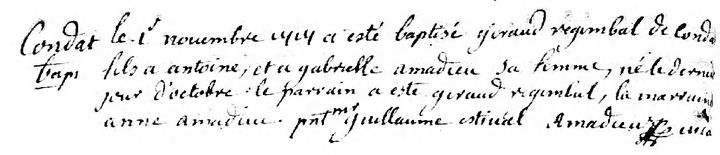 Condat le 1r novembre 1717 a esté baptisé giraud regimbal de Conda
bap: fils a antoine, et a gabrielle amadieu sa femme, né le dernie
jour d'octobre. le parrain a esté giraud regimbal, la marrain
anne amadieu. pnt mr guillaume estival Amadieu